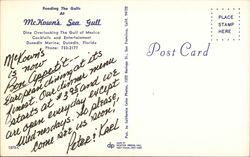 Feeding The Gulls
At
McKown's Sea Gull
Dine Overlooking The Gulf of Mexico
Cocktails and Entertainment
Dunedin Marina, Dunedin, Florida
Phone: 733-2177
PLACE
STAMP
HERE
Post Card
McKown's
is now
Bon Appetit
European dining at its
finest. Our dinner menu
starts at $3.95 and we
are open everyday except
Wednesdays. So please,
come see us soon!
Peter & Karl
dp